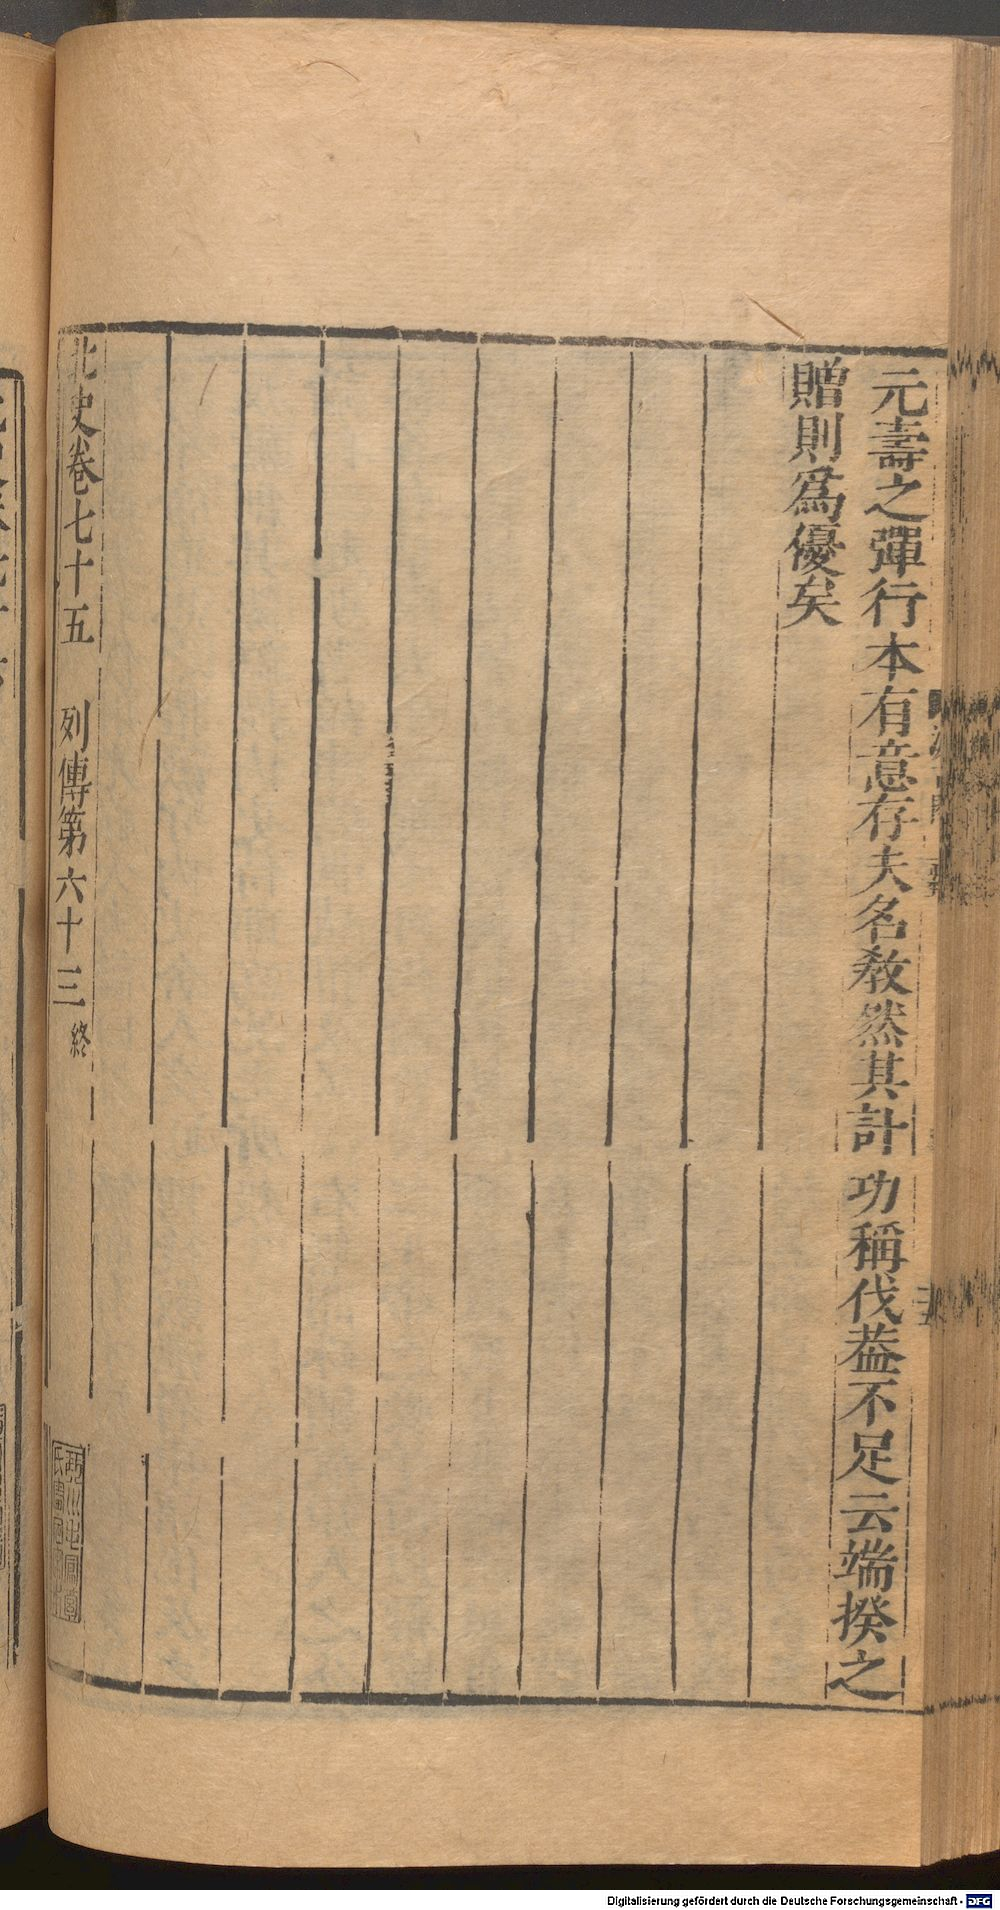 元壽之彈行本有意存夫名敎然其計功稱伐葢不足云端揆之
贈則爲優矣
北史卷七十五 列傳第六十三終
Digitalisierung gefördert durch die Deutsche Forschungsgemeinschaft - DFG